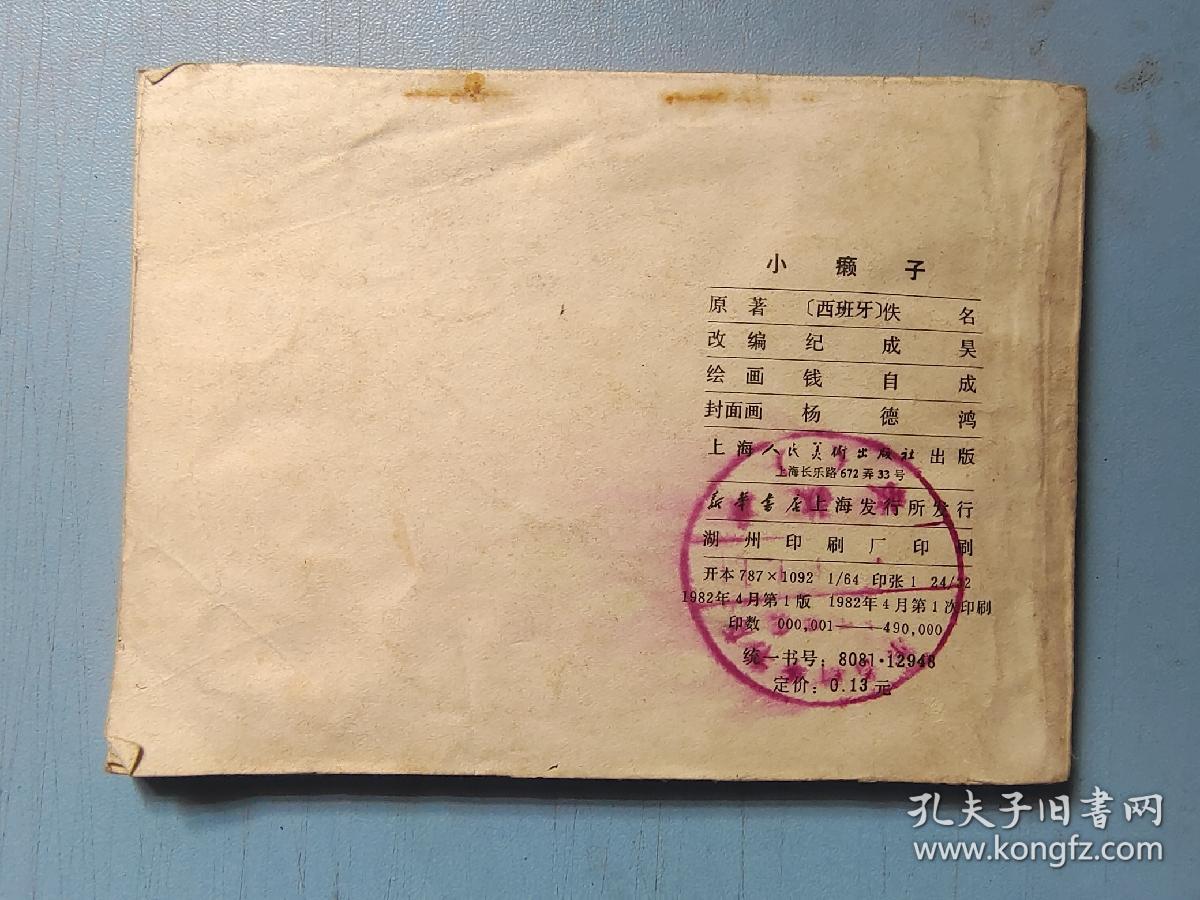 小癞子
原著 〔西班牙〕佚名
改编 纪成昊
绘画 钱自成
封面画 杨德鸿
上海人民美術出版社出版
上海长乐路672弄33号
新华书店上海发行所发行
湖州印刷厂印刷
开本787×1092 1/64 印张1 24/32
1982年4月第1版 1982年4月第1次印刷
印数 000,001——490,000
统一书号：8081·12948
定价：0.13元
孔夫子旧书网
www.kongfz.com